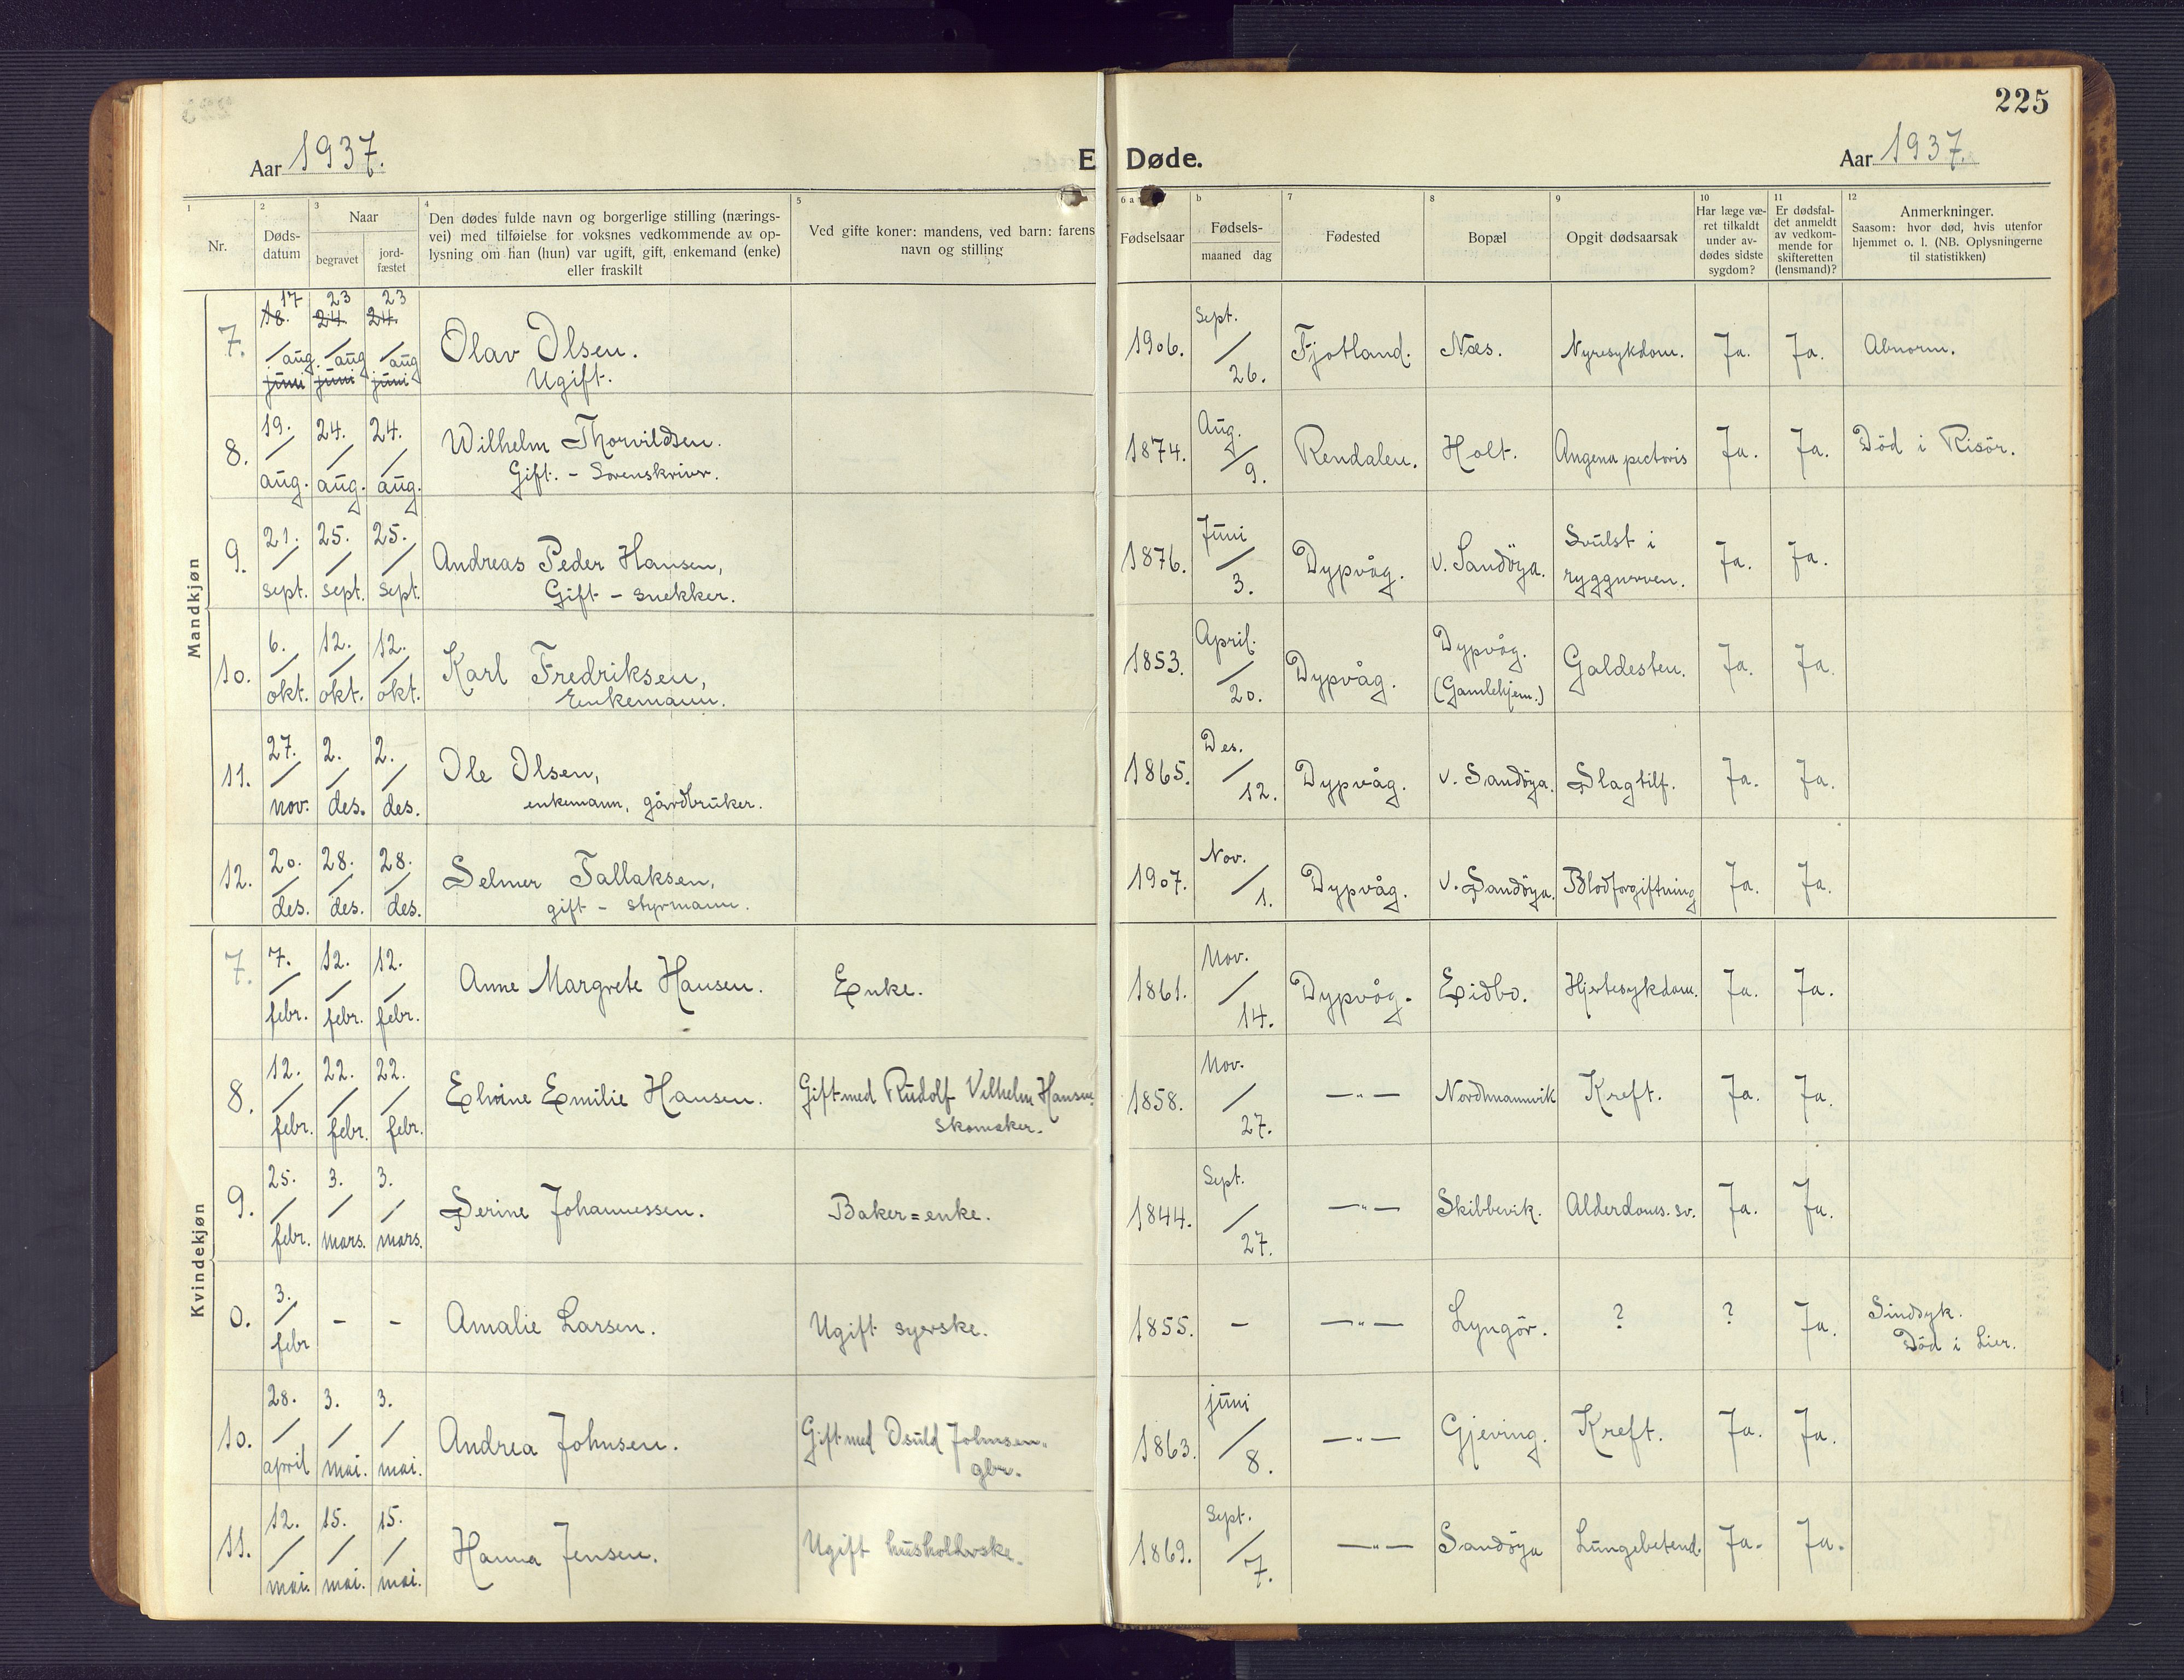 225
Aar 1937.
E Døde.
Aar 1937.
1 2 3 4 5 6 a b 7 8 9 10 11 12
Nr.
Døds-
datum
Naar
begravet
jord-
fæstet
Den dødes fulde navn og borgerlige stilling (nærings-
vei) med tilføielse for voksnes vedkommende av op-
lysning om han (hun) var ugift, gift, enkemand (enke)
eller fraskilt
Ved gifte koner: mandens, ved barn: farens
navn og stilling
Fødselsaar
Fødsels-
maaned dag
Fødested
Bopæl
Opgit dødsaarsak
Har læge væ-
ret tilkaldt
under av-
dødes sidste
sygdom?
Er dødsfal-
det anmeldt
av vedkom-
mende for
skifteretten
(lensmand)?
Anmerkninger.
Saasom: hvor død, hvis utenfor
hjemmet o. l. (NB. Oplysningerne
til statistikken)
Mandkjøn
7. 17 18. / aug. juni 23 24 / aug juni 23 24. / aug juni Olav Olsen. 1906. Sept. / 26. Fjotland. Næs. Nyresykdom. Ja. Ja. Abnorm.
Ugift.
8. 19. / aug. 24. / aug. 24. / aug. Wilhelm Thorvildsen. 1874. Aug. / 9. Rendalen. Holt. Angena pectoris Ja. Ja. Död i Risör.
Gift. - Sorenskriver.
9. 21. / sept. 25. / sept. 25. / sept. Andreas Peder Hansen, 1876. Juni / 3. Dypvåg. v. Sandöya. Svulst i ryggnerven. Ja. Ja.
Gift - snekker.
10. 6. / okt. 12. / okt. 12. / okt. Karl Fredriksen, 1853. April. / 20. Dypvåg. Dypvåg. (Gamlehjem.) Galdesten. Ja. Ja.
Enkemann.
11. 27. / nov. 2. / des. 2. / des. Ole Olsen, 1865. Des. / 12. Dypvåg. v. Sandöya. Slagtilf. Ja. Ja.
enkemann, gårdbruker.
12. 20. / des. 28. / des. 28. / des. Selmer Tallaksen, 1907. Nov. / 1. Dypvåg. v. Sandöya. Blodforgiftning Ja. Ja.
gift - styrmann.
Kvindekjøn
7. 7. / febr. 12. / febr. 12. / febr. Anne Margrete Hansen. Enke. 1861. Nov. / 14. Dypvåg. Eidbo. Hjertesykdom. Ja. Ja.
8. 12. / febr. 22. / febr. 22. / febr. Elvine Emilie Hansen. Gift med Rudolf Vilhelm Hansen 1858. Nov. / 27. —"— Nordmannvik Kreft. Ja. Ja.
Skomaker.
9. 25. / febr. 3. / mars. 3. / mars. Serine Johannessen. Baker=enke. 1844. Sept. / 27. —"— Skibbevik. Alderdoms. sv. Ja. Ja.
0. 3. / febr - - Amalie Larsen. Ugift syerske. 1855. - —"— Lyngör. ? ? Ja. Sindsyk.
Död i Lier.
10. 28. / april 3. / mai. 3. / mai. Andrea Johnsen. Gift med Osuld Johnsen. 1863. juni / 8. —"— Gjeving. Kreft. Ja. Ja.
gbr.
11. 12. / mai. 15. / mai. 15. / mai. Hanna Jensen. Ugift husholderske. 1869. Sept. / 7. —"— Sandöya Lungebetend. Ja. Ja.